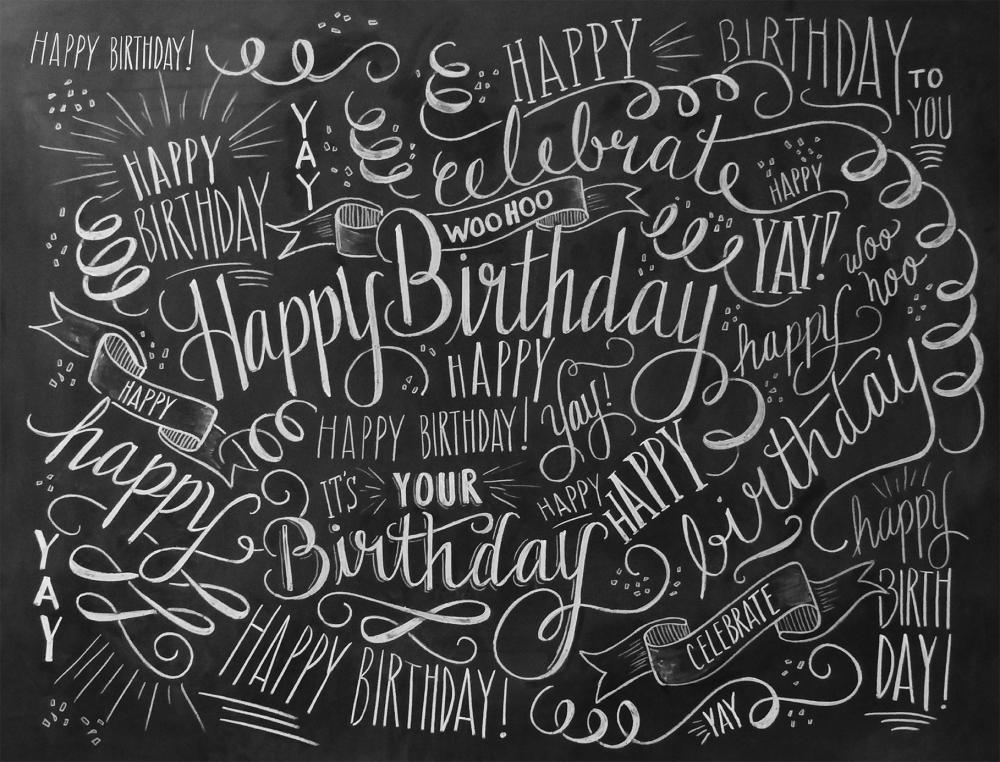 HAPPY BIRTHDAY!
HAPPY BIRTHDAY
TO
YOU
YAY
celebrate
HAPPY
BIRTHDAY
HAPPY
YAY!
WOO HOO
woo
hoo
Happy Birthday
happy
birthday
HAPPY
HAPPY
happy
HAPPY BIRTHDAY!
Yay!
IT'S YOUR
Birthday
HAPPY
HAPPY
happy
BIRTH
DAY!
YAY
CELEBRATE
HAPPY BIRTHDAY!
YAY